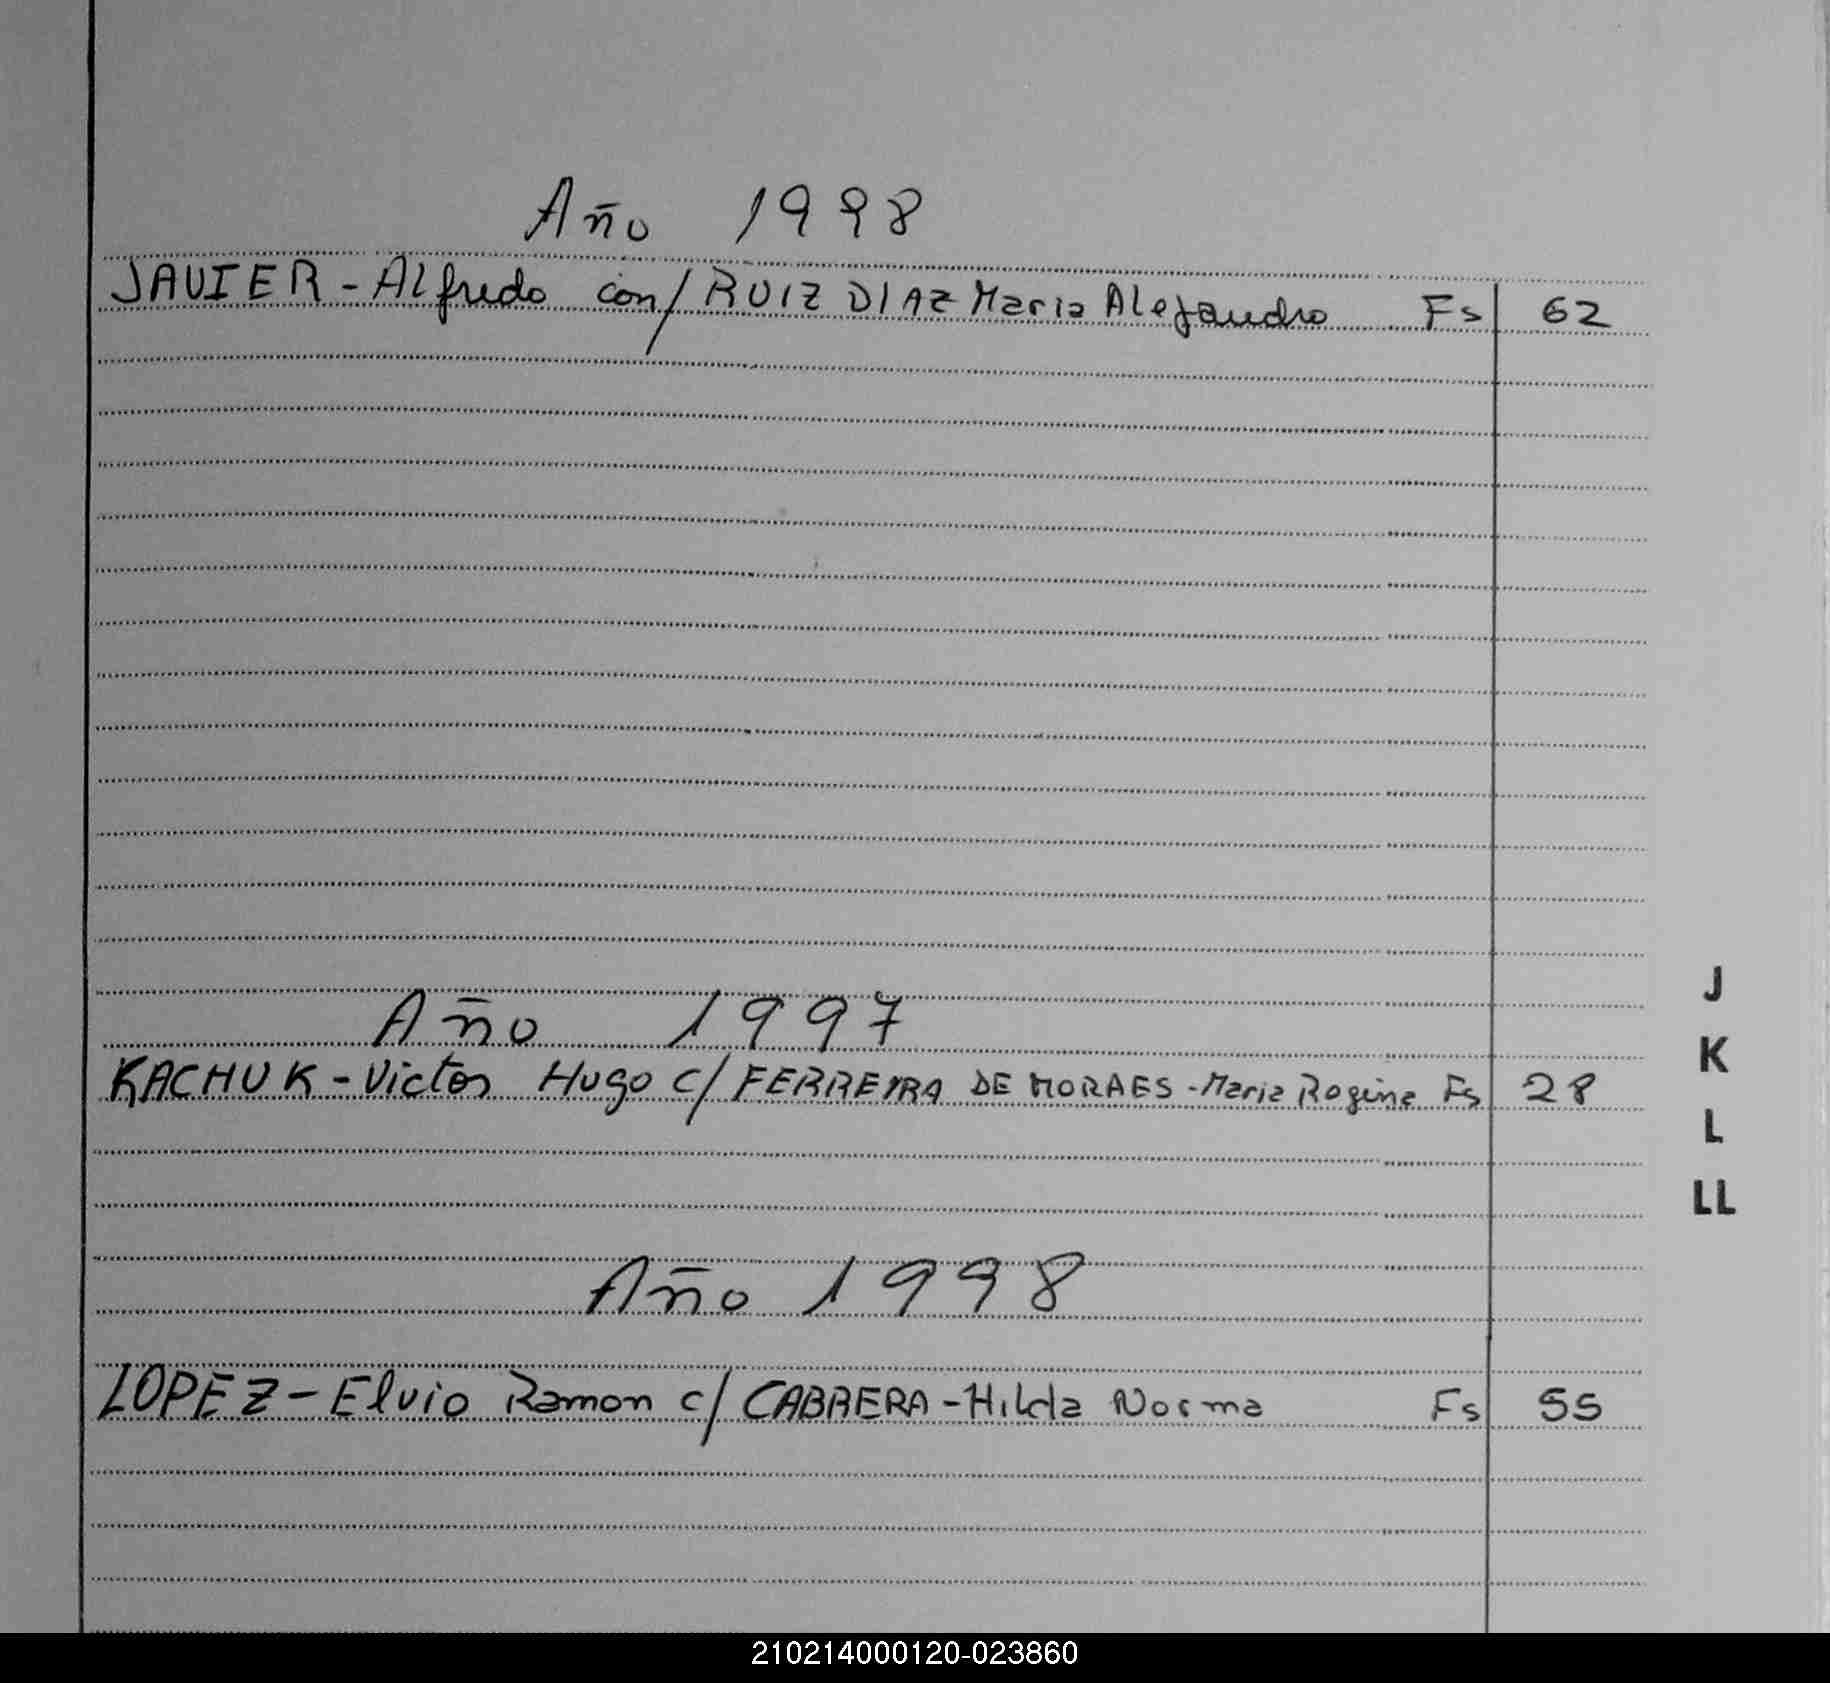 Año 1998
JAVIER - Alfredo con/ RUIZ DIAZ Maria Alejandro Fs 62
Año 1997
KACHUK - Victor Hugo c/ FERREYRA DE MORAES - Maria Rogina Fs 28
Año 1998
LOPEZ - Elvio Ramon c/ CABRERA - Hilda Norma Fs 55
J
K
L
LL
210214000120-023860